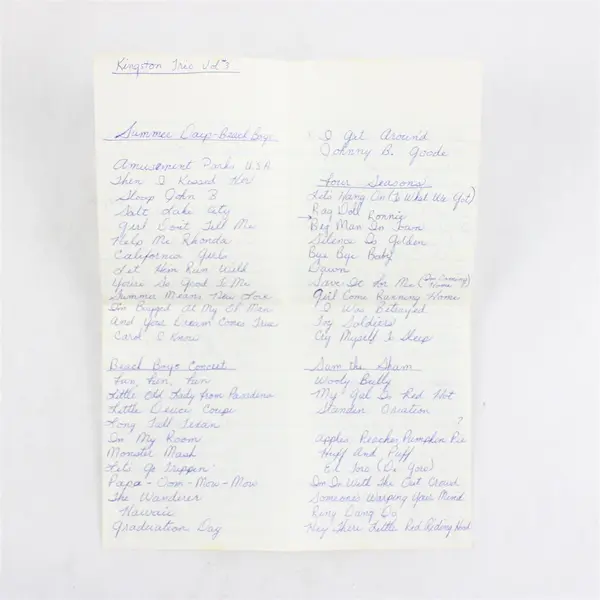 Kingston Trio Vol 3
Summer Days - Beach Boys
Amusement Parks U.S.A
Then I Kissed Her
Sloop John B
Salt Lake City
Girl Don't Tell Me
Help Me Rhonda
California Girls
Let Him Run Wild
You're So Good To Me
Summer Means New Love
I'm Bugged At My Ol Man
And Your Dream Comes True
Carol I Know
Beach Boys Concert
Fun, Fun, Fun
Little Old Lady from Pasadena
Little Deuce Coupe
Long Tall Texan
In My Room
Monster Mash
Let's Go Trippin'
Papa-Oom-Mow-Mow
The Wanderer
Hawaii
Graduation Day
I Get Around
Johnny B. Goode
Four Seasons
Let's Hang On (To What We Got)
Rag Doll
Ronnie
Big Man In Town
Silence Is Golden
Bye Bye Baby
Dawn
Save It For Me
Girl Come Running Home
I Was Betrayed
Toy Soldiers
Cry Myself To Sleep
Sam the Sham
Wooly Bully
My Gal Is Red Hot
Standen Ovation
?
Apples Peaches Pumpkin Pie
Huff And Puff
El Toro (De Goro)
I'm In With The Out Crowd
Someone's Warping Your Mind
Ring Dang Do
Hey There Little Red Riding Hood